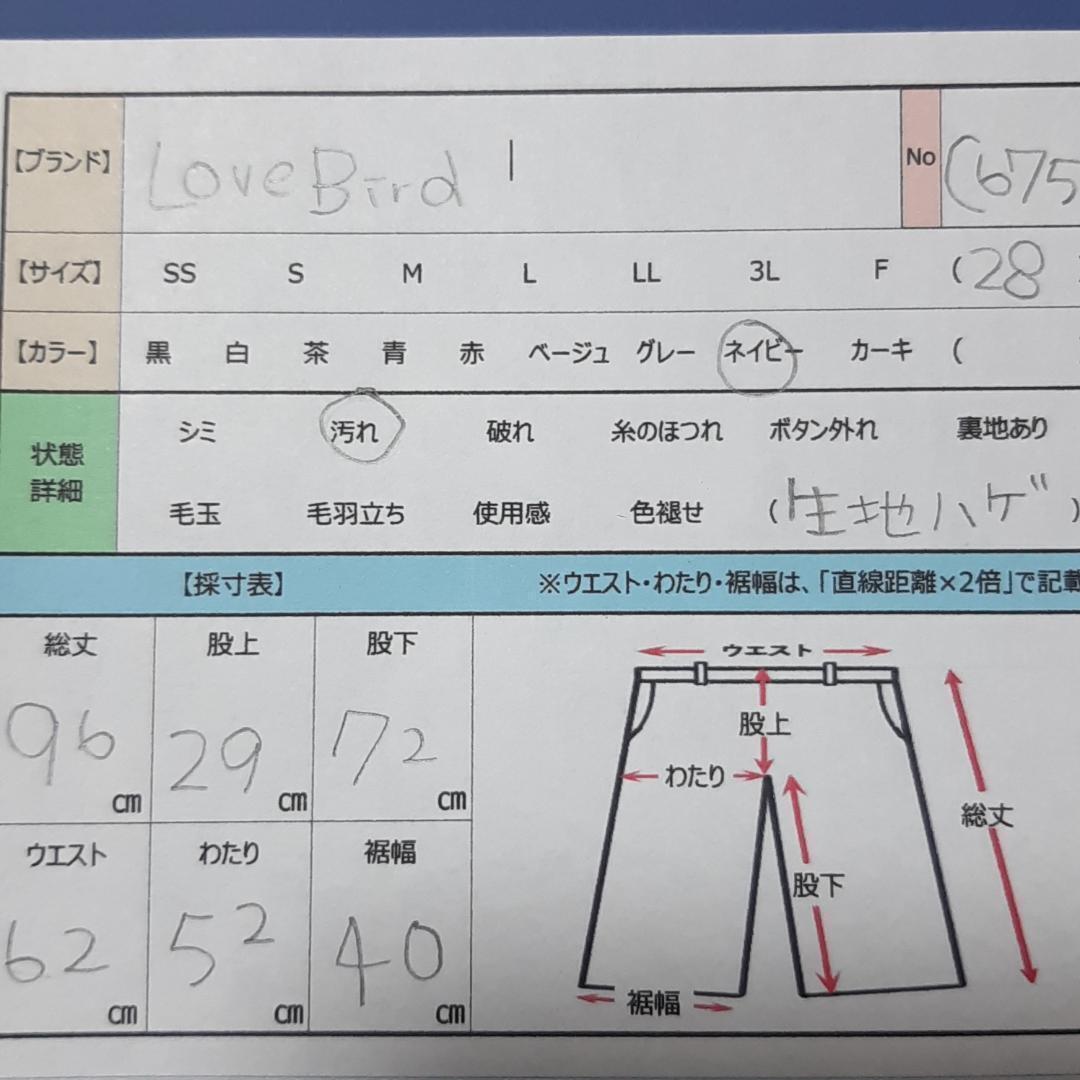 【ブランド】 LoveBird No (675
【サイズ】 SS S M L LL 3L F (28
【カラー】 黒 白 茶 青 赤 ベージュ グレー ネイビー カーキ (
状態
詳細
シミ 汚れ 破れ 糸のほつれ ボタン外れ 裏地あり
毛玉 毛羽立ち 使用感 色褪せ (生地ハゲ)
【採寸表】 ※ウエスト・わたり・裾幅は、「直線距離×2倍」で記載
総丈 股上 股下
96 cm 29 cm 72 cm
ウエスト わたり 裾幅
62 cm 52 cm 40 cm
ウエスト
股上
わたり
総丈
股下
裾幅